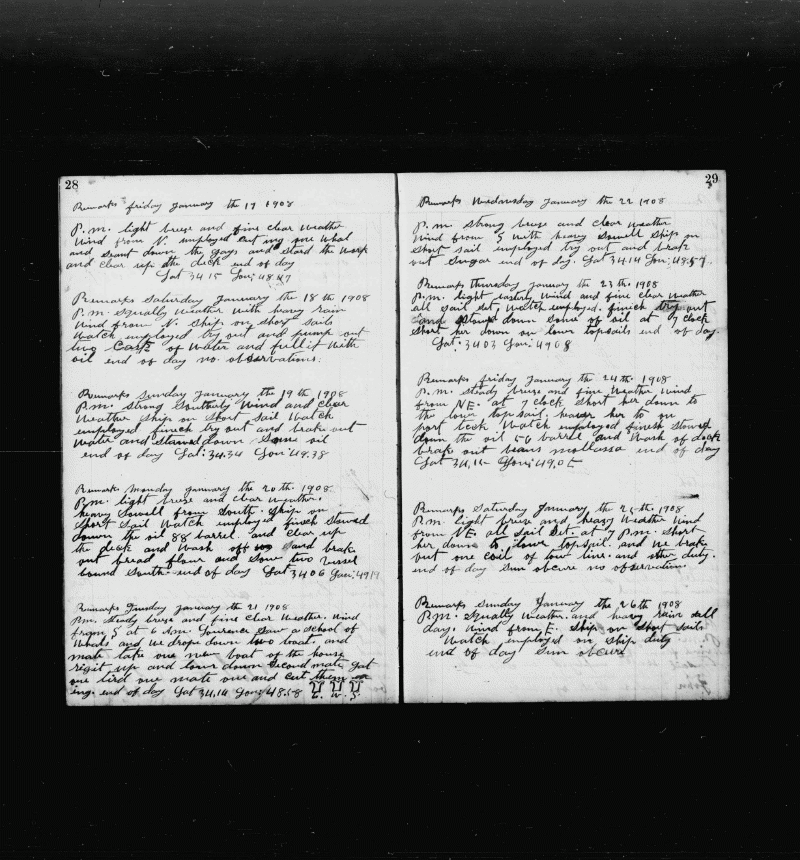 28
Remarks friday January the 17 1908
P.m. light breze and fine clear Weather
Wind from N. employed cut ing one Whal
and scant down the gays and stard the Work
and clear up the deck end of day
Lat 34.15 Lon: 48.47
Remarks Saturday January the 18 th 1908
P.m. Squally Weather with heavy rain
Wind from N. Ship on short sails
Watch employed try out and pump out
two Casks of Water and full it with
oil end of day no observations.
Remarks Sunday January the 19 th 1908
P.m. Strong Southerly Wind and clear
Weather Ship on Short Sail Watch
employed finech try out and brake out
Water and stowed down Some oil
end of day Lat: 34.34 Lon: 49.38
Remarks Monday January the 20 th. 1908
P.m. light breze and clear Weather.
heavy Sowell from South. Ship on
Short Sail Watch employed finech Stowed
down the oil 88 barrel. and clear up
the deck and Wash off and brake
out bread flour and Saw two Vessel
bound South end of day Lat 34.06 Lon: 49
Remarks Tuesday January the 21 1908
P.m. Steady breze and fine clear Weather. Wind
from S at 6 A.m. Lowered Saw a School of
Whal and we drope down two boat. and
mate take one new boat of the house
rigit up and lower down Second mate got
one tird one mate one and cut them
ing. end of day Lat 34,14 Lon: 48.58
29
Remarks Wednesday January the 22 1908
P.m. Strong breze and clear Weather
Wind from S With heavy Sowell Ship on
Short sail employed try out and brake
out Sugar end of day. Lat 34.14 Lon: 48:57
Remarks Thursday January the 23 th. 1908
P.m. light easterly Wind and fine clear Weather
all sail set, Watch employed. finich try out
and down some of oil at 7 clock
Short her down on lower topsails end of day.
Lat: 34 03 Lon: 49 08
Remarks friday January the 24 th. 1908
P.m. Steady breze and fine Weather Wind
from NE. at 7 clock Short her down to
the lower topsail, her to on
port teck Watch employed finesh Stowed
down the oil 56 barrel and Wash of deck
brake out beans molasso end of day
Lat 34,15 Lon: 49,05
Remarks Saturday January the 25 th. 1908
P.m. light breze and heavy Weather Wind
from NE. all Sail Set. at 7 P.m. Short
her down to lower topsail. and we brake
out one coil of tow line. and other duty.
end of day Sun obcure no observation.
Remarks Sunday January the 26 th 1908
P.m. Squally Weather. and heavy rain all
day. Wind from E. Ship on Short Sails
Watch employed on Ship duty
end of day Sun obcure